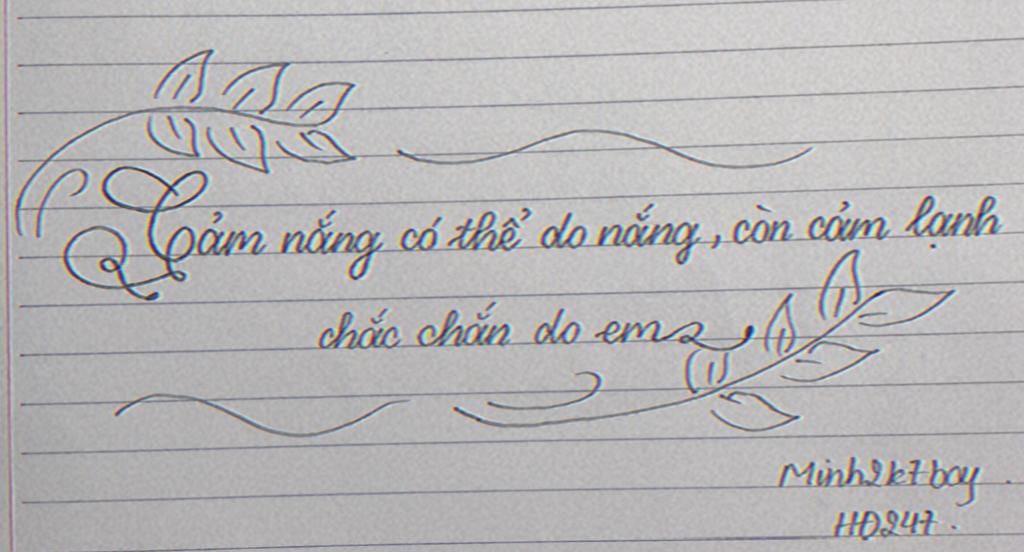 Cảm nắng có thể do nắng, còn cảm lạnh
chắc chắn do em
Minh2k7boy.
HĐ247.